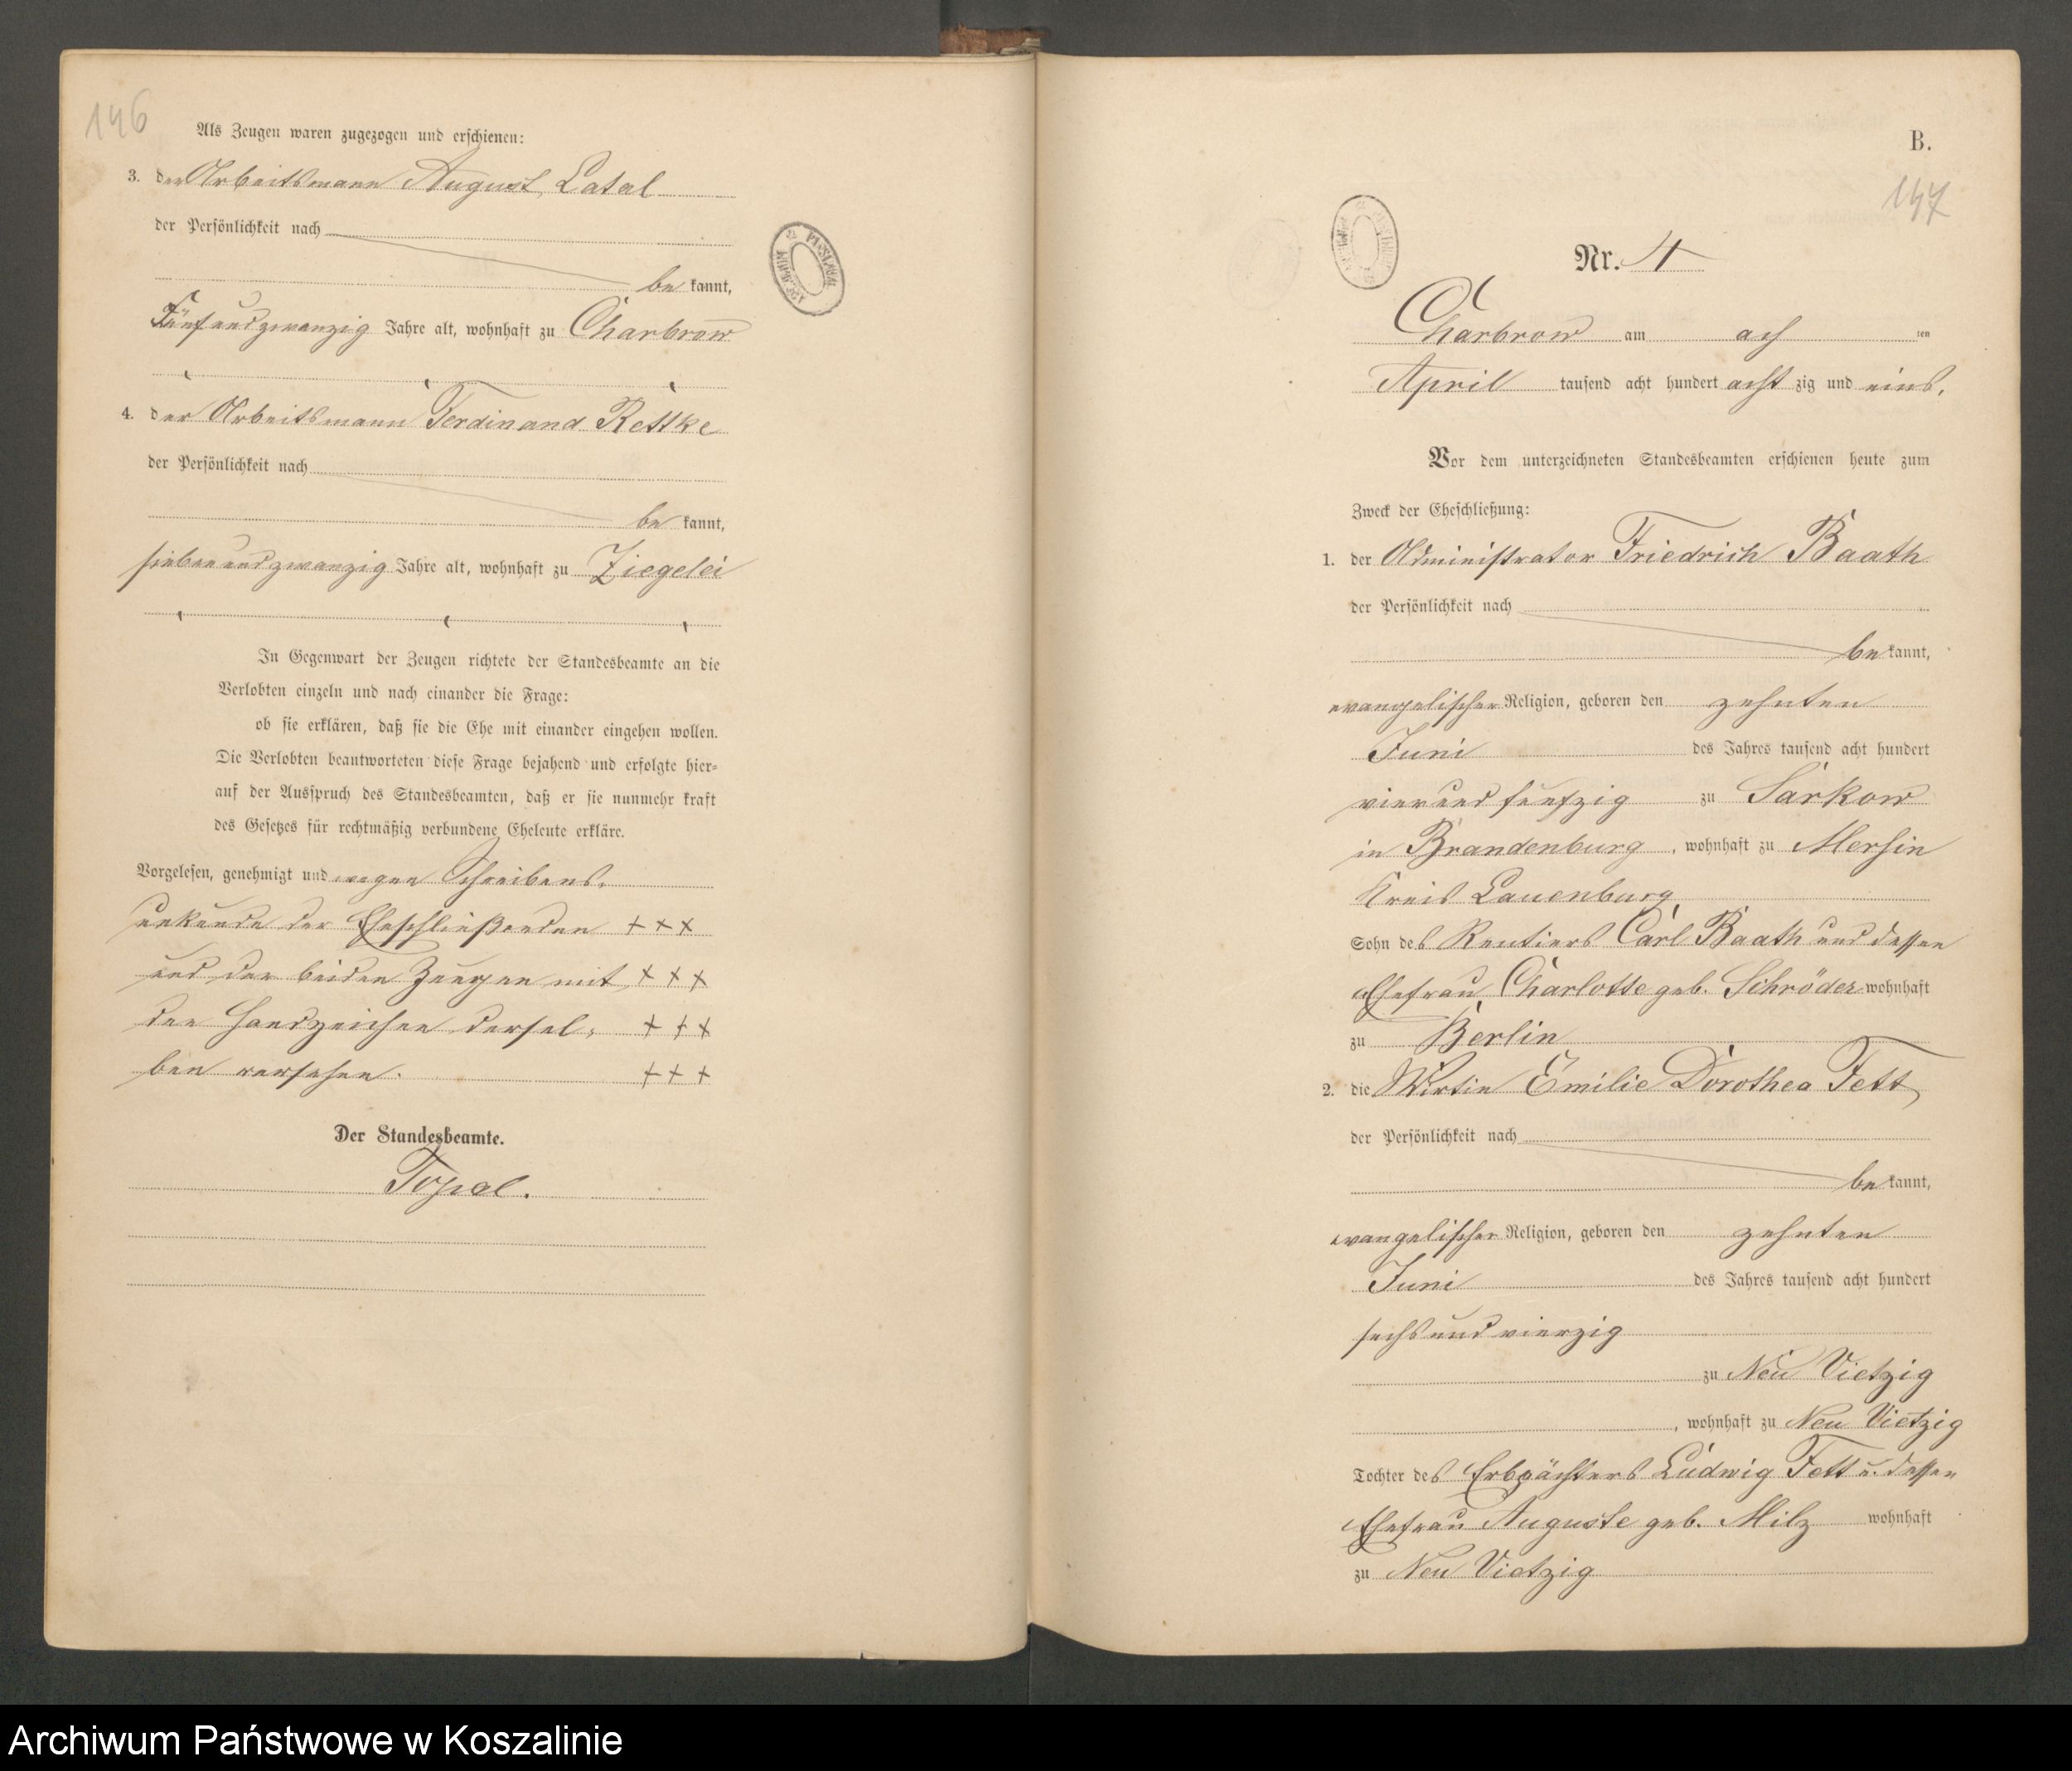 146
Als Zeugen waren zugezogen und erschienen:
3. der Arbeitsmann August Latal
der Persönlichkeit nach
be kannt,
Fünfundzwanzig Jahre alt, wohnhaft zu Charbrow
4. der Arbeitsmann Ferdinand Rettke
der Persönlichkeit nach
be kannt,
siebenundzwanzig Jahre alt, wohnhaft zu Ziegelei
In Gegenwart der Zeugen richtete der Standesbeamte an die
Verlobten einzeln und nach einander die Frage:
ob sie erklären, daß sie die Ehe mit einander eingehen wollen.
Die Verlobten beantworteten diese Frage bejahend und erfolgte hier-
auf der Ausspruch des Standesbeamten, daß er sie nunmehr kraft
des Gesetzes für rechtmäßig verbundene Eheleute erkläre.
Vorgelesen, genehmigt und wegen Schreibens-
unkunde der Eheschließenden +++
und der beiden Zeugen mit +++
den Handzeichen dersel- +++
ben versehen. +++
Der Standesbeamte.
Topel.
B.
147
Nr. 4
Charbrow am ach ten
April tausend acht hundert acht zig und eins.
Vor dem unterzeichneten Standesbeamten erschienen heute zum
Zweck der Eheschließung:
1. der Administrator Friedrich Baath
der Persönlichkeit nach
be kannt,
evangelischer Religion, geboren den zehnten
Juni des Jahres tausend acht hundert
vierund funfzig zu Sarkow
in Brandenburg, wohnhaft zu Mersin
Kreis Lauenburg
Sohn des Rentiers Carl Baath und dessen
Ehefrau Charlotte geb. Schröder wohnhaft
zu Berlin
2. die Wirtin Emilie Dorothea Fett
der Persönlichkeit nach
be kannt,
evangelischer Religion, geboren den zehnten
Juni des Jahres tausend acht hundert
sechsund vierzig
zu Neu Vietzig
, wohnhaft zu Neu Vietzig
Tochter des Erbpächters Ludwig Fett u. dessen
Ehefrau Auguste geb. Milz wohnhaft
zu Neu Vietzig
Archiwum Państwowe w Koszalinie